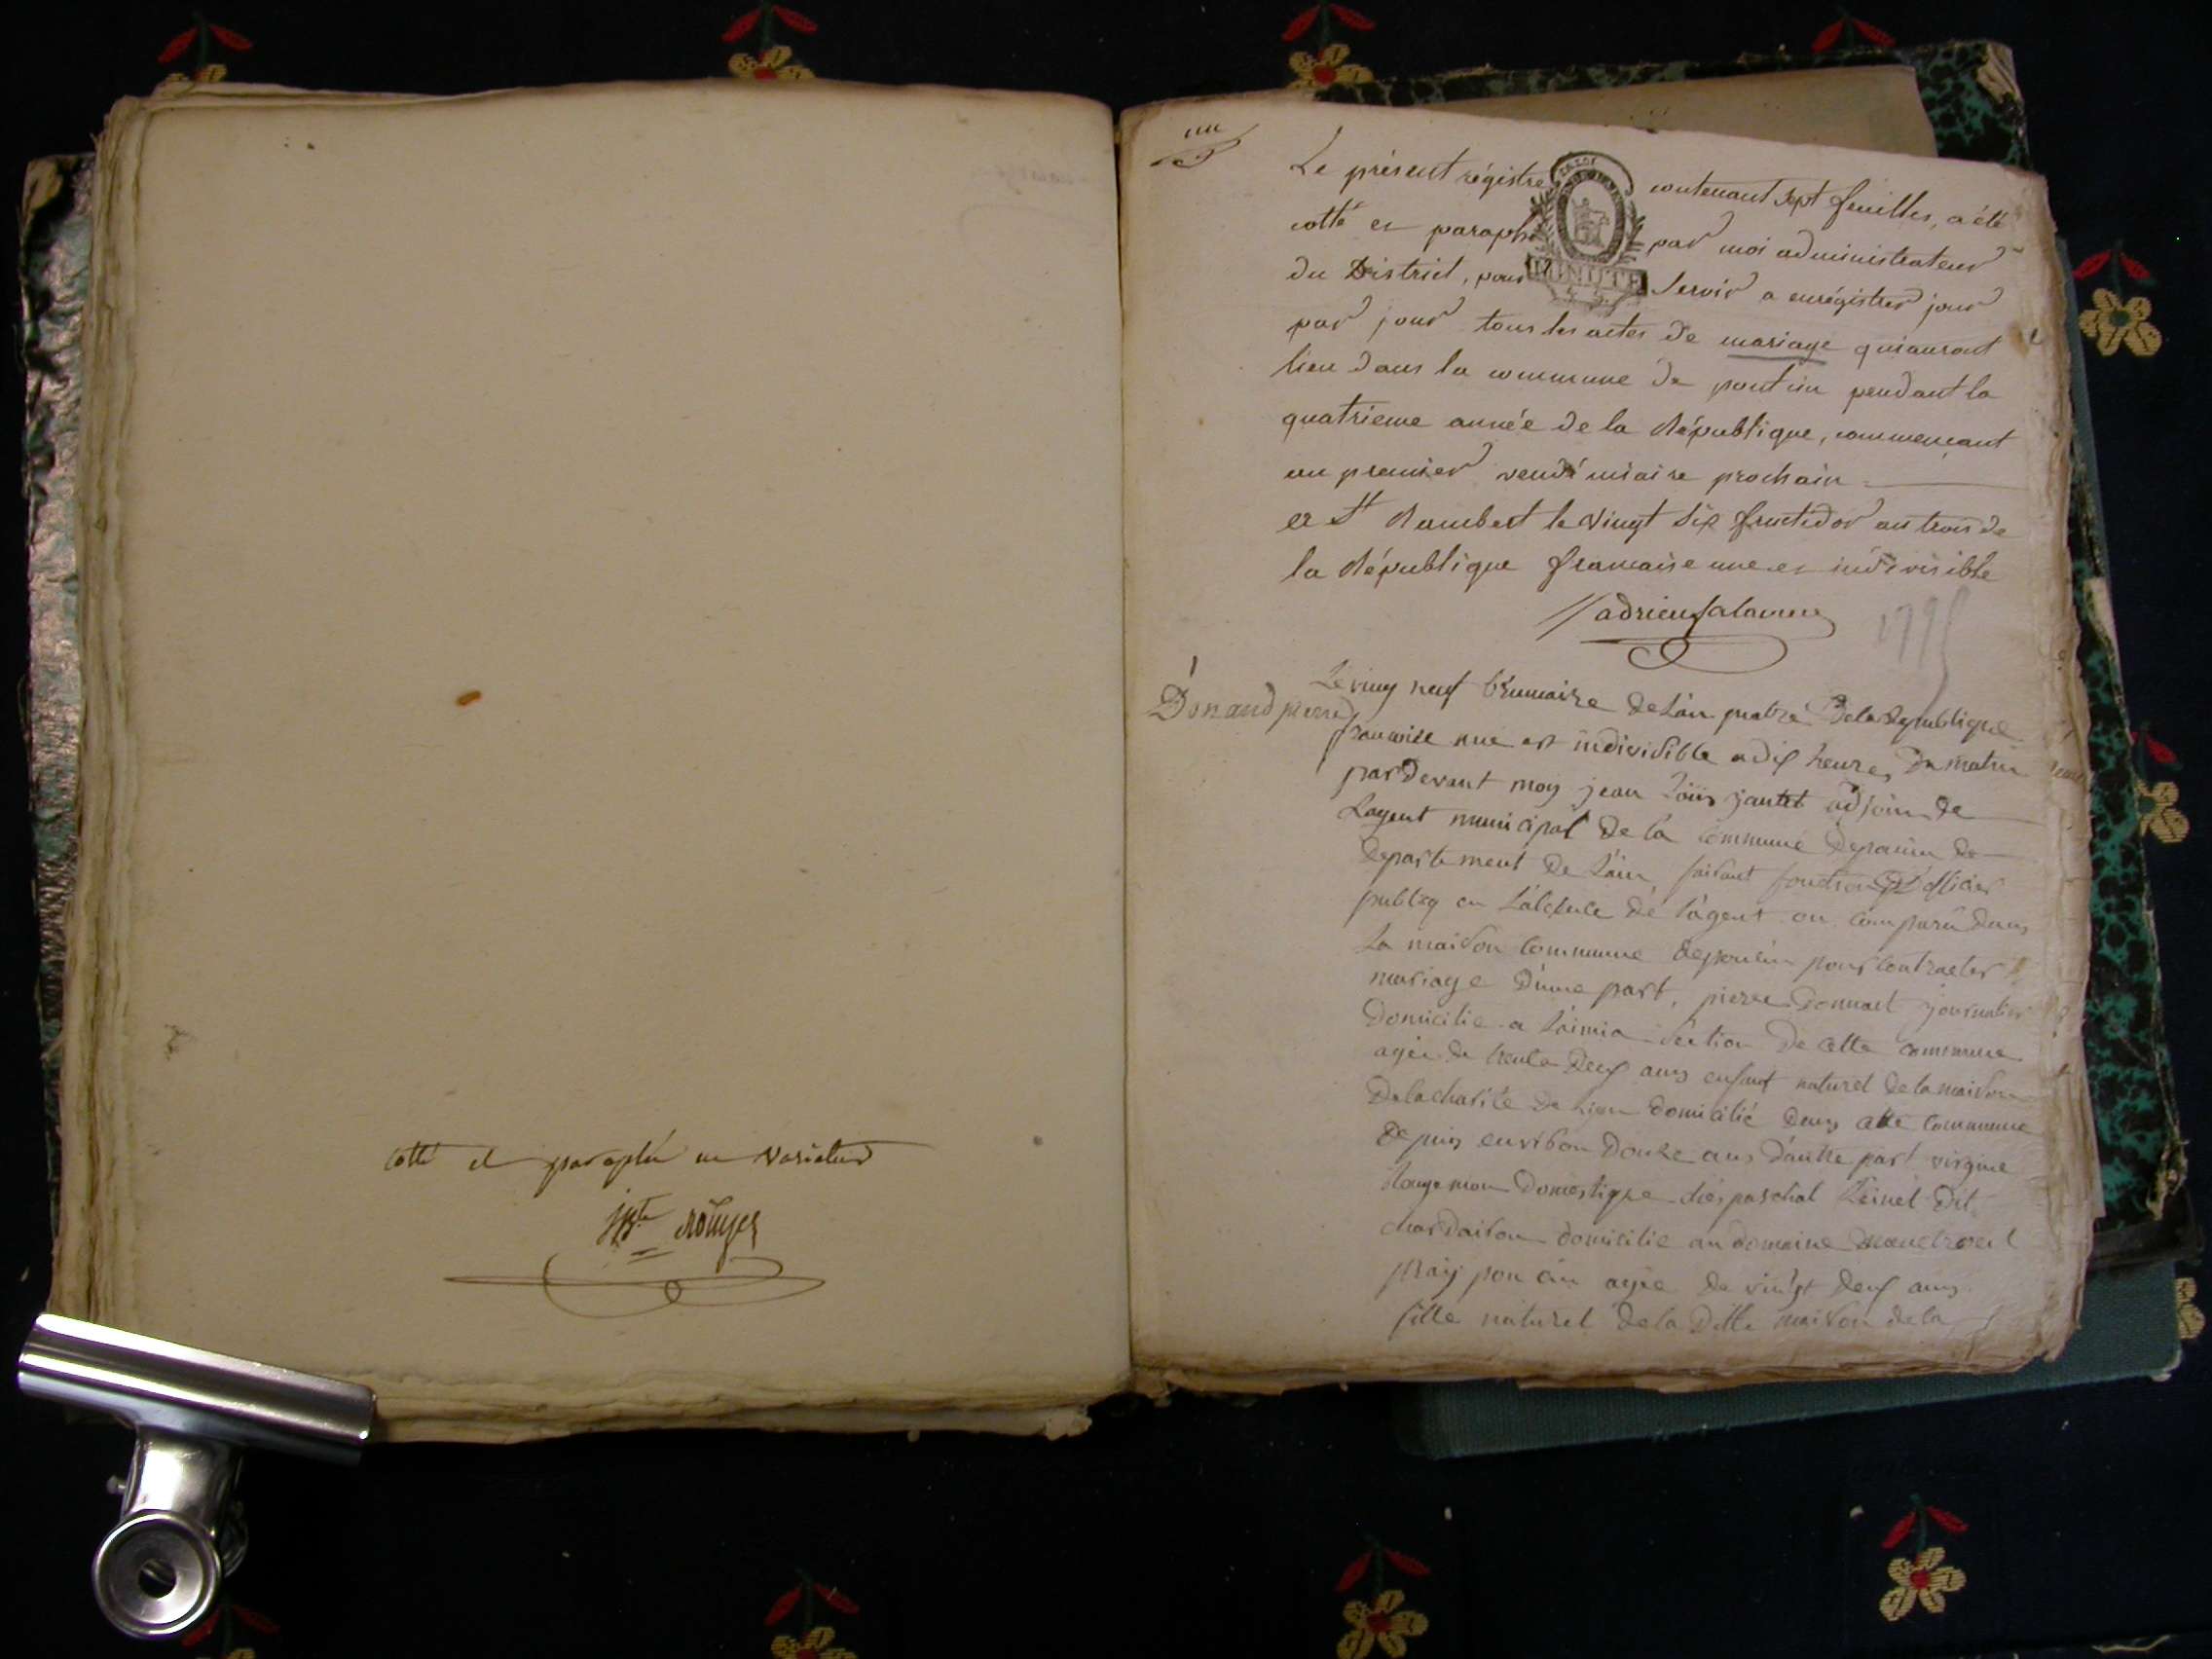 cotté et paraphé ne varietur
jbte rouyer
un
Le présent régistre contenant sept feuilles, a été
cotté et paraphé par moi administrateur
du District, pour Servir a enrégistrer jour
par jour tous les actes de mariage qui auront
lieu dans la commune de poncin pendant la
quatrieme année de la République, commençant
au premier vendémiaire prochain
a St Rambert le vingt Six fructidor an trois de
la République francaise une et indivisible
adrien
1795
Donand pierre
Le ving neuf brumaire de L'an quatre de la Republique
francaise une et indivisible a dix heures du matin
par devant moy jean Loüis jantet adjoin de
Lagent municipal de la commune de poncin de
departement de L'ain faisant fonction D'officier
publiq en L'absence de l'agent on comparu dans
La maison commune de poncin pour contracter
mariage D'une part, pierre Donnart journalier
Domicilie a section De cette commune
agée de trente Deux ans enfant naturel de la maison
De la charité de Lion domicilié dans cette commune
depuis environ Douze ans D'autre part virginie
Rougemon Domestique ches paschal dit
domicilie au domaine
agée de vingt deux ans
fille naturel de la Ditte maison de la